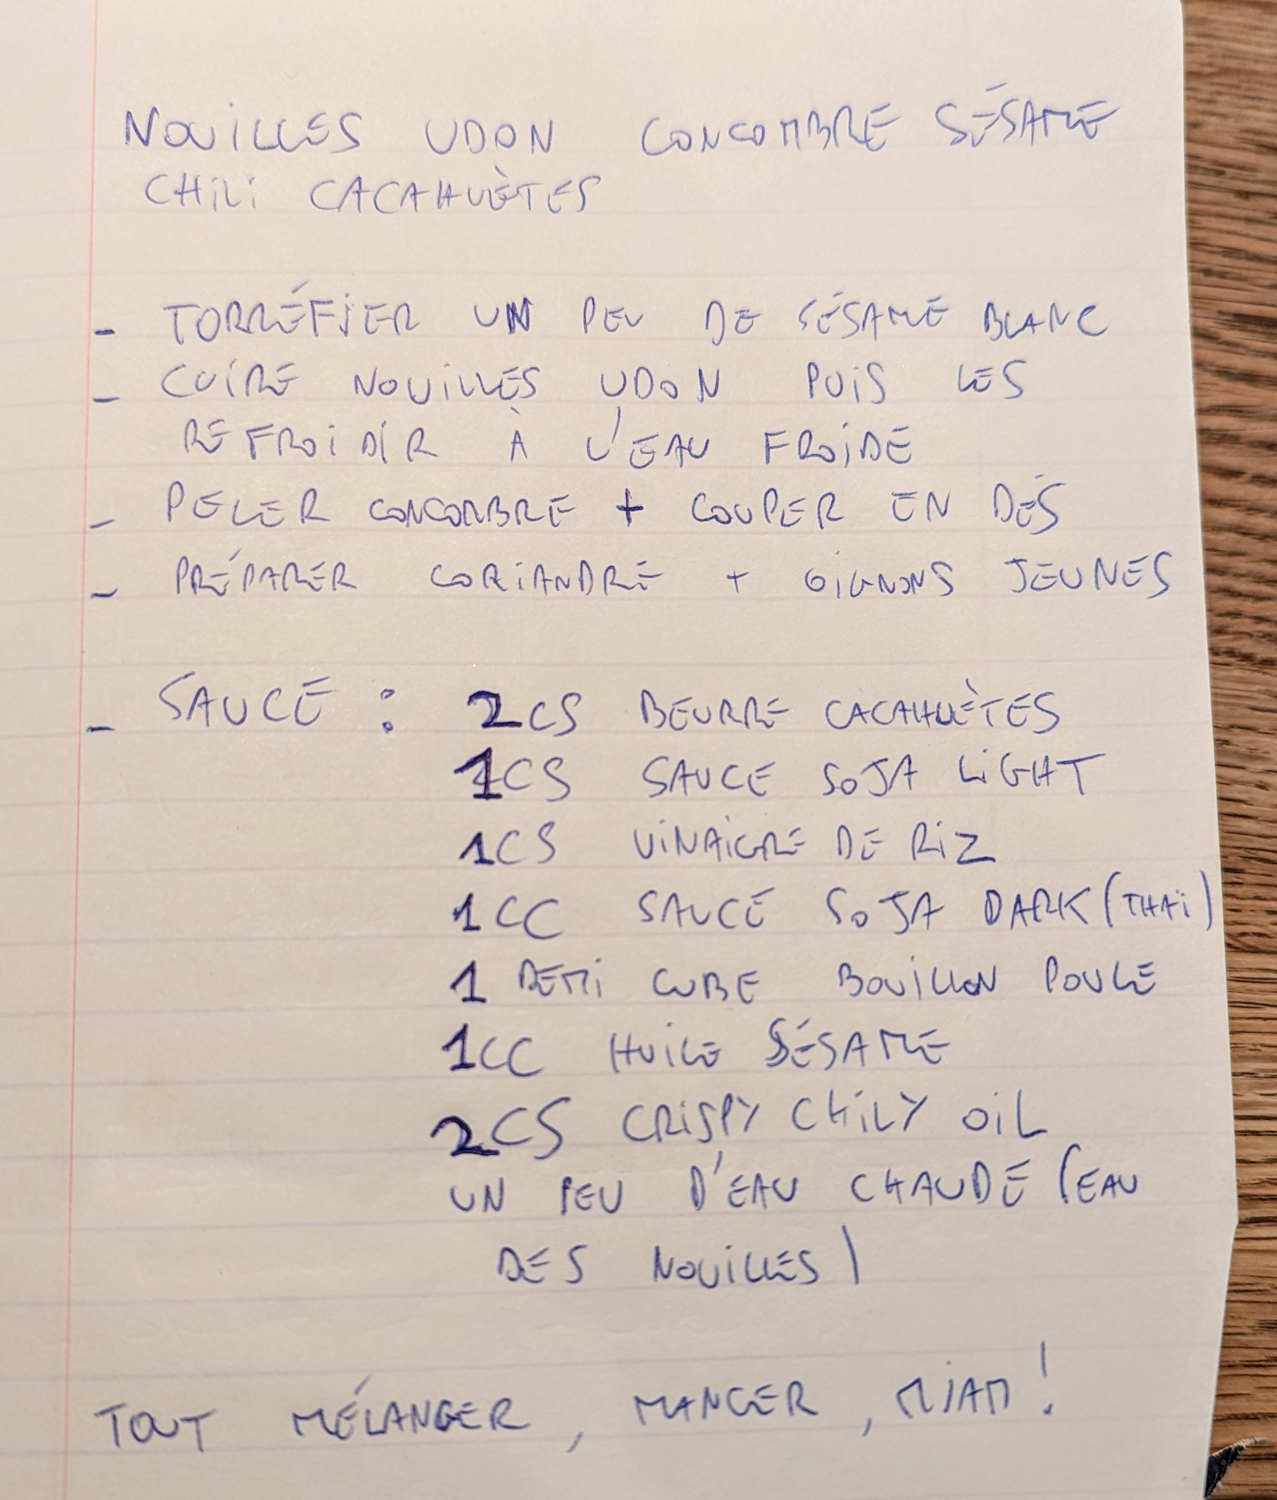 NOUILLES UDON CONCOMBRE SÉSAME
CHILI CACAHUÈTES
- TORRÉFIER UN PEU DE SÉSAME BLANC
- CUIRE NOUILLES UDON PUIS LES
REFROIDIR À L'EAU FROIDE
- PELER CONCOMBRE + COUPER EN DÉS
- PRÉPARER CORIANDRE + OIGNONS JEUNES
- SAUCE : 2CS BEURRE CACAHUÈTES
1CS SAUCE SOJA LIGHT
1CS VINAIGRE DE RIZ
1CC SAUCE SOJA DARK (THAÏ)
1 DEMI CUBE BOUILLON POULE
1CC HUILE SÉSAME
2CS CRISPY CHILY OIL
UN PEU D'EAU CHAUDE (EAU
DES NOUILLES)
TOUT MÉLANGER, MANGER, MIAM!